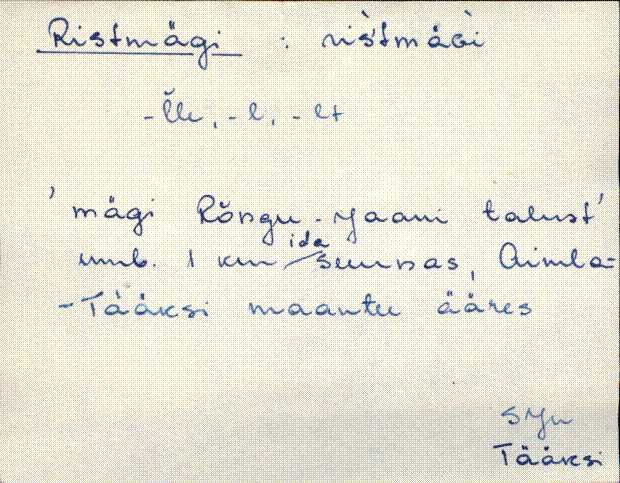 Ristmägi : ris̀tmäǵi
-l̆le, -l, -lt
'mägi Rõngu-Jaani talust'
umb. 1 km ida suunas, Aimla-
-Tääksi maantee ääres
SJn
Tääksi